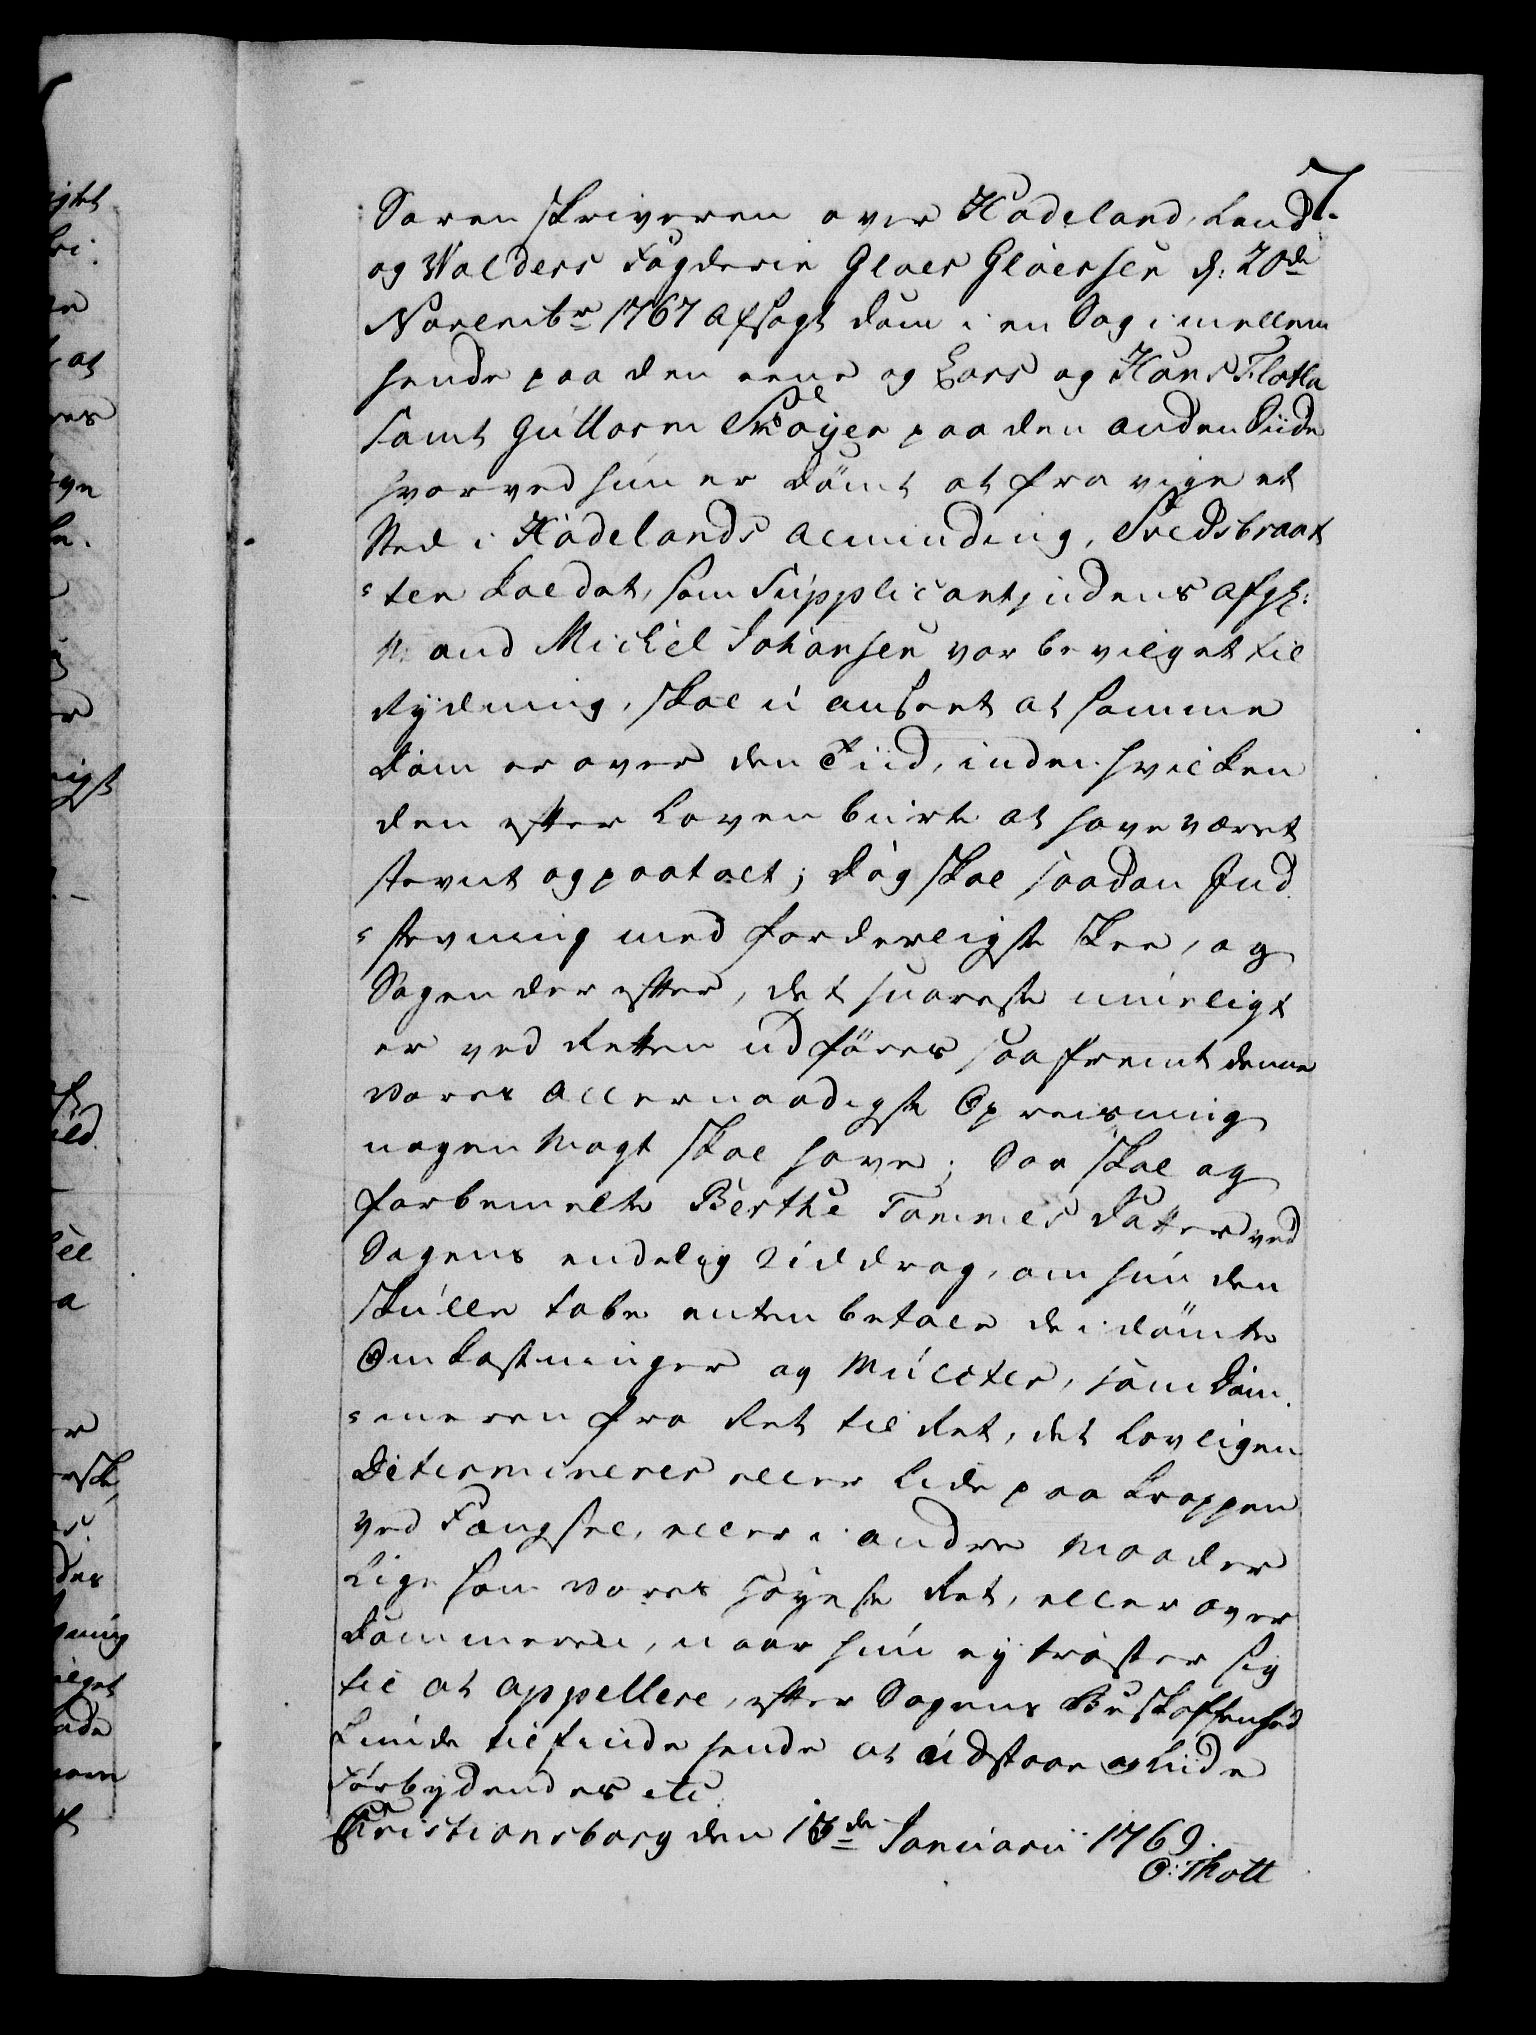 7.
Sorenskriveren over Hadeland, Land
og Walders Fogderie Gloer Gloersen d: 20de
Novembr 1767 afsagt Dom i en Sag imellem
hende paa den eene og Lars og Hans Flatla
samt Guttorm paa den anden Siide
hvorved hun er dömt at fravige et
Sted i Hadelands Alminding, Svedsbraat
ten kaldet, som Supplicantindens afg:
Mand Michel Johansen var bevilget til
Rydning, skal u-anseet at samme
Dom er over den Tiid, inden hvilken
den efter Loven burte at have været
stevnt og paatalt; dog skal saadan Ind
stevning med forderligste skee, og
Sagen derefter, det snareste mueligt
er ved Retten udföres saafremt denne
Vores allernaadigste Opreisning
nogen Magt skal have; Saa skal og
forbemelte Berthe Tommes Datter ved
Sagens endelig Uddrag, om hun den
skulle tabe enten betale de idömte
Omkostninger og Mulcter, som Dom
meren fra Ret til Ret, det lovligen
Determinerer eller lide paa Kroppen
ved Fængsel, eller i andre Maader
Ligesom Vores höyeste Ret, eller over
Dommeren, naar hun ey tröster sig
til at appellere, efter Sagens Beskaffenhed
kunde tilfinde hende at udstaae og liide
Forbydendes etc.
Christiansborg den 13de Januarii 1769.
O: Thott